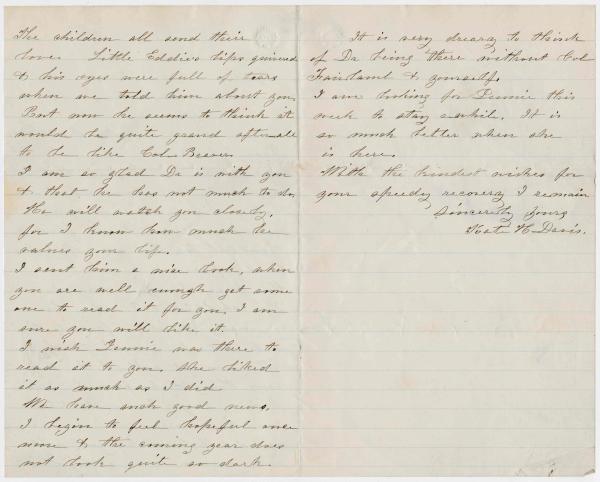 The children all send their
love. Little Eddie's lips quivered
& his eyes were full of tears
when we told him about you.
But now he seems to think it
would be quite grand after all
to be like Col. Beaver.
I am so glad Dr is with you
& that he has not much to do.
He will watch you closely,
for I know how much he
values your life.
I sent him a nice book, when
you are well enough get some
one to read it for you, I am
sure you will like it.
I wish Dennie was there to
read it to you. She liked
it as much as I did
We have such good news.
I begin to feel hopeful once
more & the coming year does
not look quite so dark.
It is very dreary to think
of Dr being there without Col
Fairlamb & yourself.
I am looking for Dennie this
week to stay awhile. It is
so much better when she
is here.
With the kindest wishes for
your speedy recovery I remain
Sincerely yours
Kate H Davis.